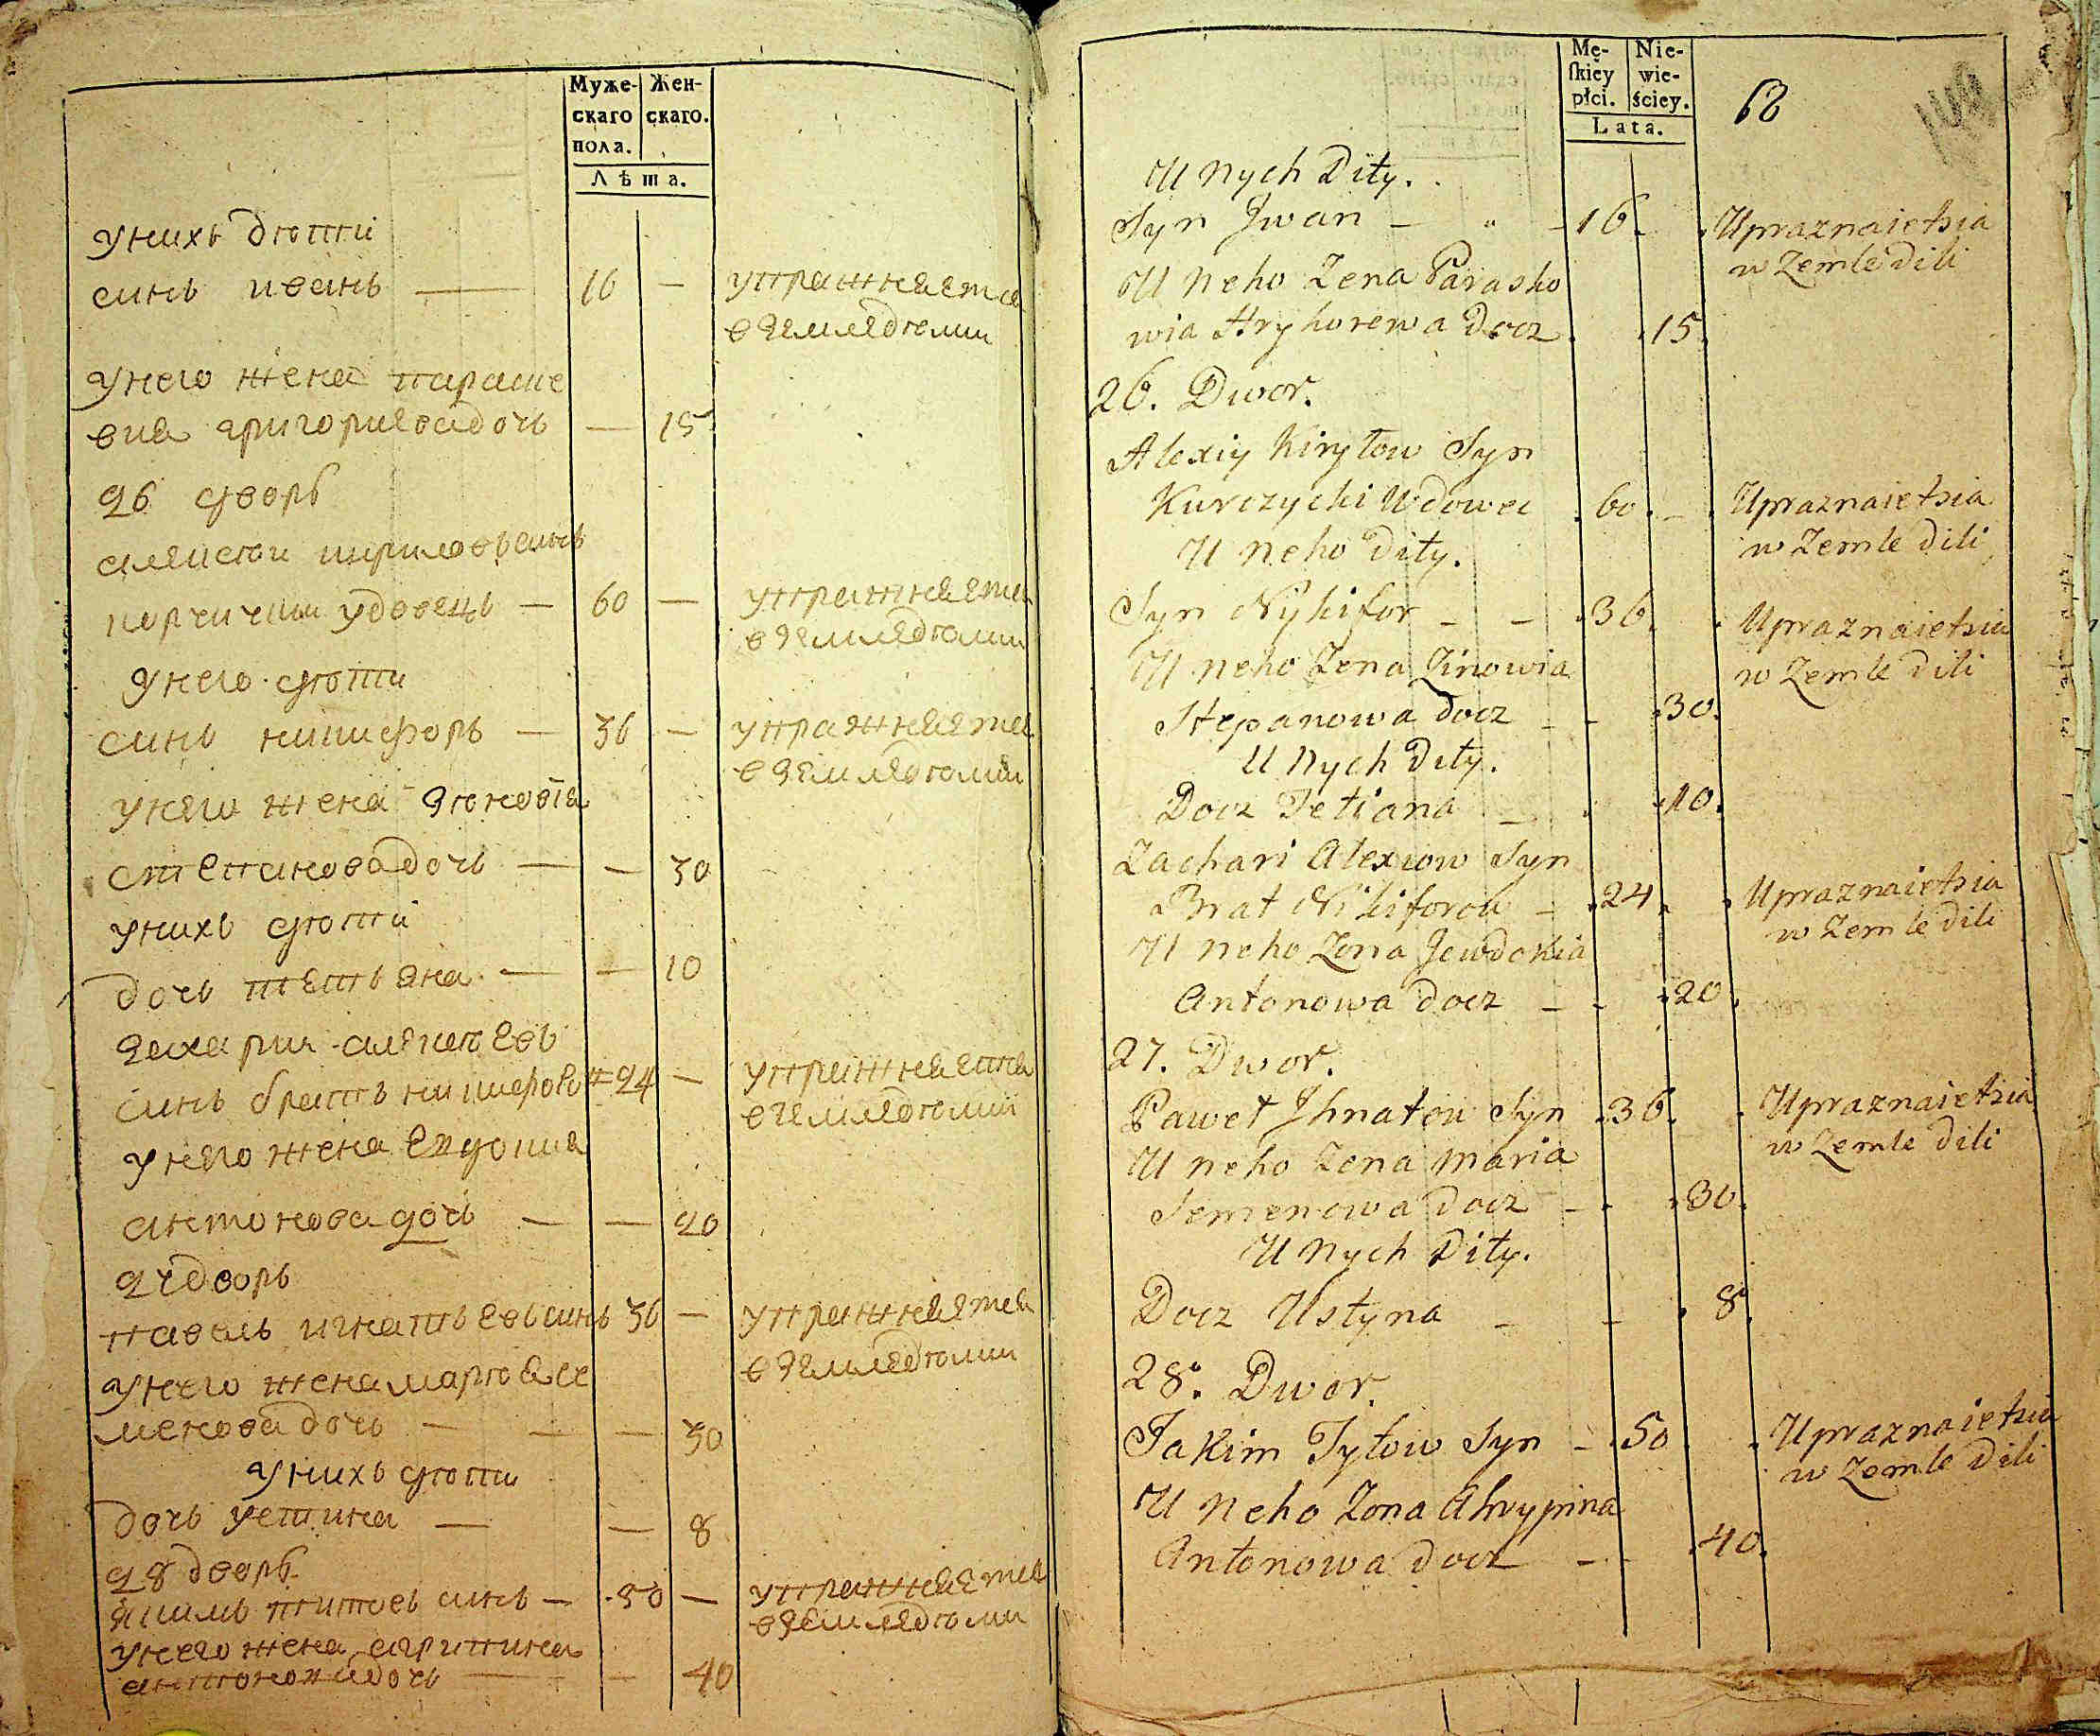 Муже-
скаго
пола.
Жен-
скаго.
Лѣта.
унихъ дѣтѣи
синъ иванъ — 16 — упражняется
вземледѣлии
унего жена параске
вия григориева дочь — 15
26 дворъ
алексѣи кириловъ синъ
корчички удовецъ — 60 — упражняется
вземледѣлии
унего дѣти
синъ никифоръ — 36 — упражняется
вземледѣлии
унего жена зѣновіа
степанова дочь — — 30
унихъ дѣтѣи
дочь тетьяна — — 10
захарии алексѣевъ
синъ братъ никифоровъ 24 — упражняется
вземледѣлии
унего жена евдокия
антонова дочь — — 20
27 дворъ
павелъ игнатьевъ синъ 36 — упражняется
вземледѣлии
унего жена марѣя се
менова дочь — — — 30
унихъ дѣти
дочь устина — — 8
28 дворъ
якимъ титовъ синъ — 50 — упражняется
вземледѣлии
унего жена агрипина
антонова дочь — — 40
Mę-
skiey
płci.
Nie-
wie-
ściey.
Lata.
68
U nych Dity.
Syn Jwan — 16. Upraznaietsia
w Zemle dili
U neho Zena Parasko
wia Hryhorewa Docz 15.
26. Dwor.
Alexiy Kiryłow Syn
Kurczycki Wdowec 60. Upraznaietsia
w Zemle dili
U neho Dity.
Syn Nykifor — — 36. Upraznaietsia
w Zemle dili
U neho Zena Zinowia
Stepanowa docz — — 30.
U Nych Dity.
Docz Tetiana — 10.
Zachari Alexiow Syn
Brat Nikiforow — 24. Upraznaietsia
w Zemle dili
U neho Zona Jewdokia
Antonowa docz — — 20.
27. Dwor.
Paweł Jhnatow Syn 36. Upraznaietsia
w Zemle dili
U neho Zena Maria
Semenowa docz — — 30.
U Nych Dity.
Docz Ustyna — — 8.
28. Dwor.
Jakim Tytow Syn — 50 Upraznaietsia
w Zemle dili
U Neho Zona Ahrypina
Antonowa docz — — 40.